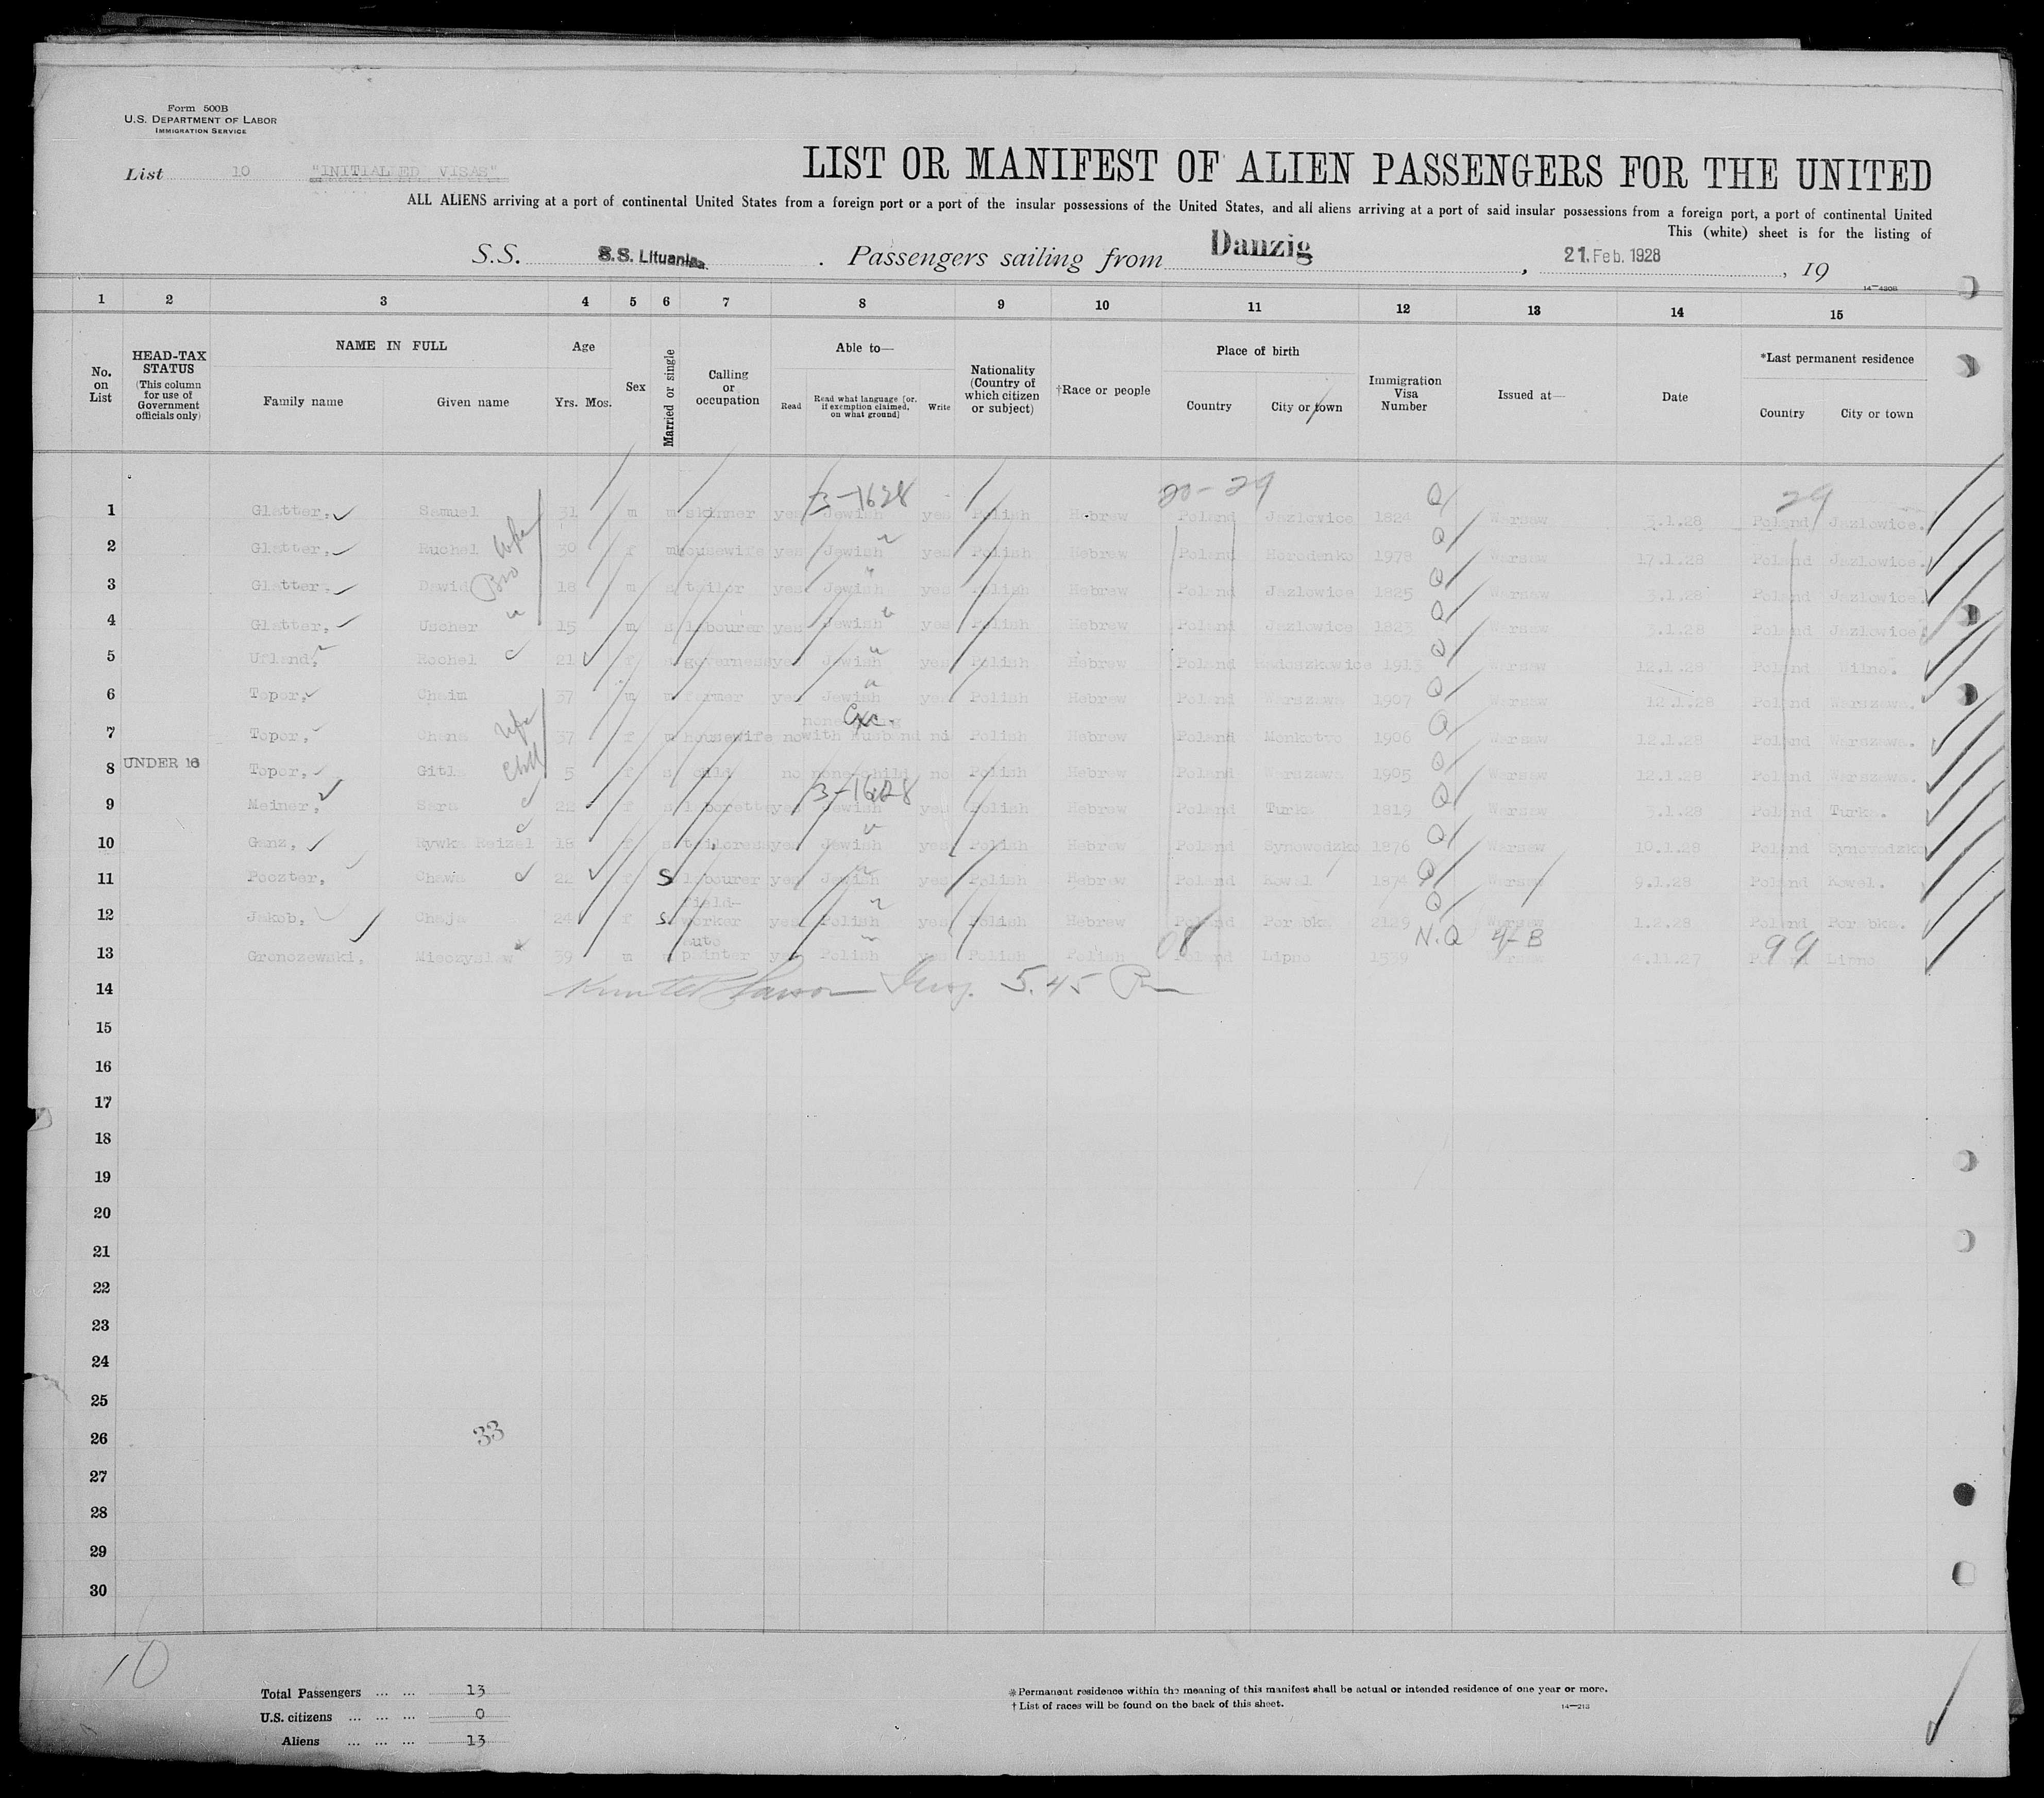 Form 500B
U.S. DEPARTMENT OF LABOR
IMMIGRATION SERVICE
List 10 "INITIALLED VISAS"
LIST OR MANIFEST OF ALIEN PASSENGERS FOR THE UNITED
ALL ALIENS arriving at a port of continental United States from a foreign port or a port of the insular possessions of the United States, and all aliens arriving at a port of said insular possessions from a foreign port, a port of continental United
This (white) sheet is for the listing of
S.S. S.S. Lituania. Passengers sailing from Danzig, 21. Feb. 1928, 19
1 2 3 4 5 6 7 8 9 10 11 12 13 14 15
No. on List
HEAD-TAX STATUS (This column for use of Government officials only)
NAME IN FULL
Family name Given name
Age
Yrs. Mos.
Sex
Married or single
Calling or occupation
Able to—
Read Read what language [or, if exemption claimed, on what ground] Write
Nationality (Country of which citizen or subject)
†Race or people
Place of birth
Country City or town
Immigration Visa Number
Issued at—
Date
*Last permanent residence
Country City or town
3-1628 20-29 Q 29
1 Glatter, Samuel 31 m m skinner yes Jewish yes Polish Hebrew Poland Jazlovice 1824 Warsaw 3.1.28 Poland Jazlowice.
2 Glatter, Ruchel wife 30 f m housewife yes Jewish yes Polish Hebrew Poland Horodenko 1978 Q Warsaw 17.1.28 Poland Jazlowice.
3 Glatter, Dawid Bro 18 m s tailor yes Jewish yes Polish Hebrew Poland Jazlowice 1825 Q Warsaw 3.1.28 Poland Jazlowice.
4 Glatter, Uscher 15 m s labourer yes Jewish yes Polish Hebrew Poland Jazlowice 1823 Q Warsaw 3.1.28 Poland Jazlowice.
5 Ufland, Rochel 21 f s governess yes Jewish yes Polish Hebrew Poland Radoszkowice 1913 Q Warsaw 12.1.28 Poland Wilno.
6 Topor, Chaim 37 m m farmer yes Jewish yes Polish Hebrew Poland Warszawa 1907 Q Warsaw 12.1.28 Poland Warszawa.
7 Topor, Chana wife 37 f m housewife no with husband no Polish Hebrew Poland Monkotvo 1906 Q Warsaw 12.1.28 Poland Warszawa.
8 UNDER 16 Topor, Gitla child 5 f s child no none-child no Polish Hebrew Poland Warszawa 1905 Q Warsaw 12.1.28 Poland Warszawa.
3-1628
9 Meiner, Sara 22 f s laborette yes Jewish yes Polish Hebrew Poland Turka 1819 Q Warsaw 3.1.28 Poland Turka.
10 Ganz, Rywka Reizel 18 f s tailoress yes Jewish yes Polish Hebrew Poland Synowodzko 1876 Q Warsaw 10.1.28 Poland Synowodzko
11 Poczter, Chawa 22 f S labourer yes Jewish yes Polish Hebrew Poland Kowel 1874 Q Warsaw 9.1.28 Poland Kowel.
field-
12 Jakob, Chaja 24 f S. worker yes Polish yes Polish Hebrew Poland Porabka 2129 Q Warsaw 1.2.28 Poland Porabka.
auto 08 N.Q 4-B 99
13 Gronczewski, Mieczyslaw 39 m m painter yes Polish yes Polish Polish Poland Lipno 1539 Warsaw 4.11.27 Poland Lipno
14 5.45 Pm
15
16
17
18
19
20
21
22
23
24
25
26
33
27
28
29
30
10
Total Passengers ... ... 13
U.S. citizens ... ... ... 0
Aliens ... ... ... 13
*Permanent residence within the meaning of this manifest shall be actual or intended residence of one year or more.
†List of races will be found on the back of this sheet. 14—213